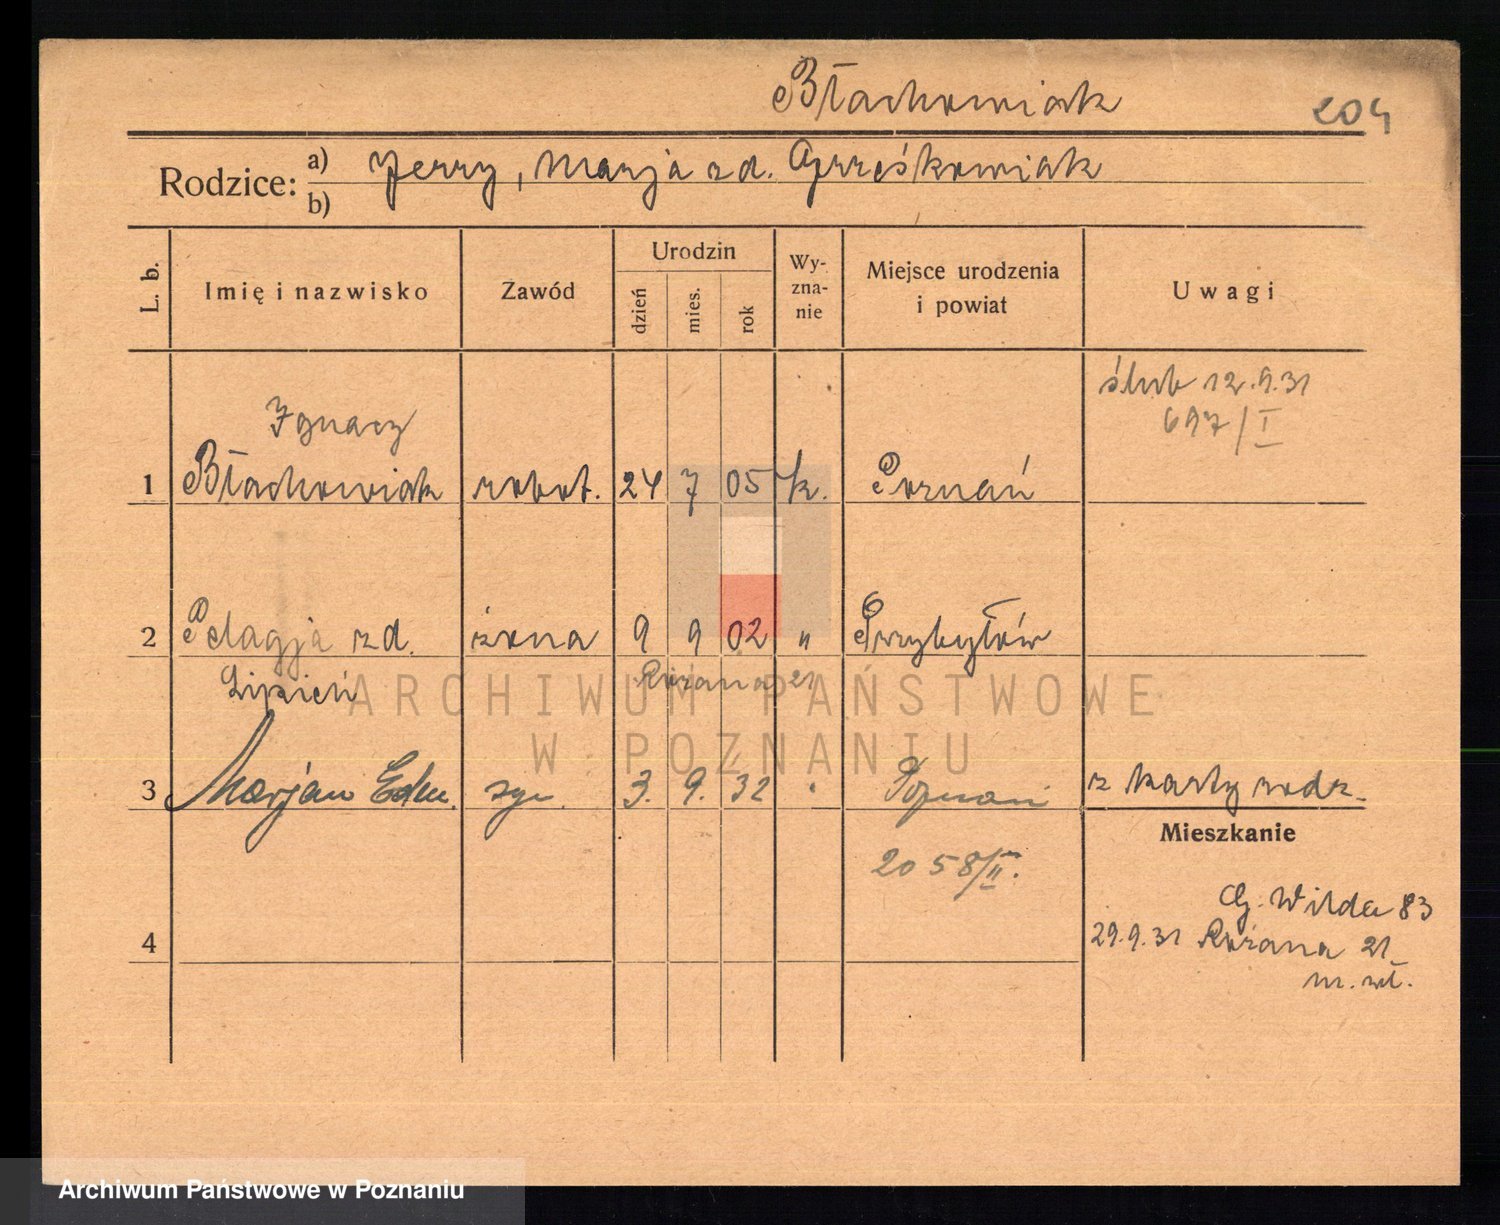 Błachowiak 204
Rodzice: a) Jerzy, Marja zd. Grześkowiak
b)
L. b. Imię i nazwisko Zawód Urodzin dzień mies. rok Wy-zna-nie Miejsce urodzenia i powiat Uwagi
ślub 12.9.31
697/I
Ignacy
1 Błachowiak robot. 24 7 05 k. Poznań
2 Pelagja zd. żona 9 9 02 " Przybysław
Lipień Różana 21
ARCHIWUM PAŃSTWOWE
W POZNANIU
3 Marjan Edm. syn 3. 9. 32 " Poznań z karty rodz.
Mieszkanie
2058/II.
G. Wilda 83
4 29.9.31 Różana 21
m. wł.
Archiwum Państwowe w Poznaniu